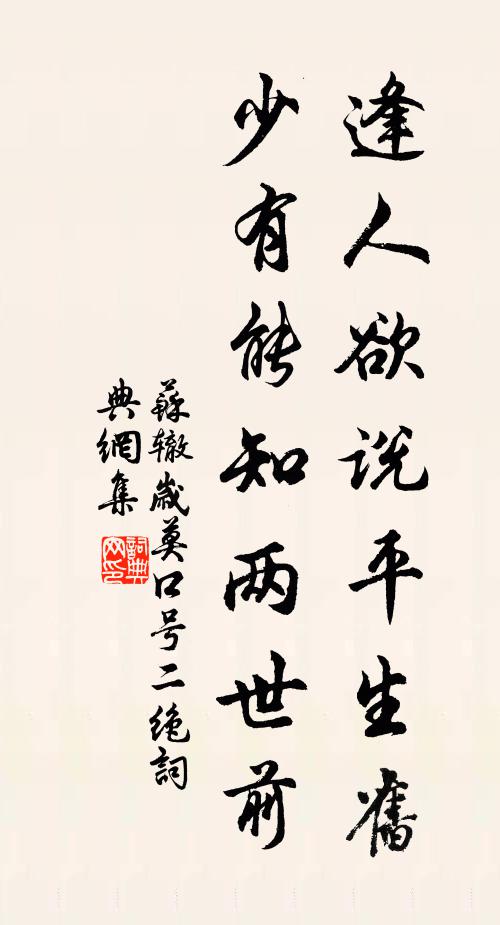 逢人欲说平生舊
少有能知两世前
蘇辙歲莫口号二绝詞
典網集
詞典网印